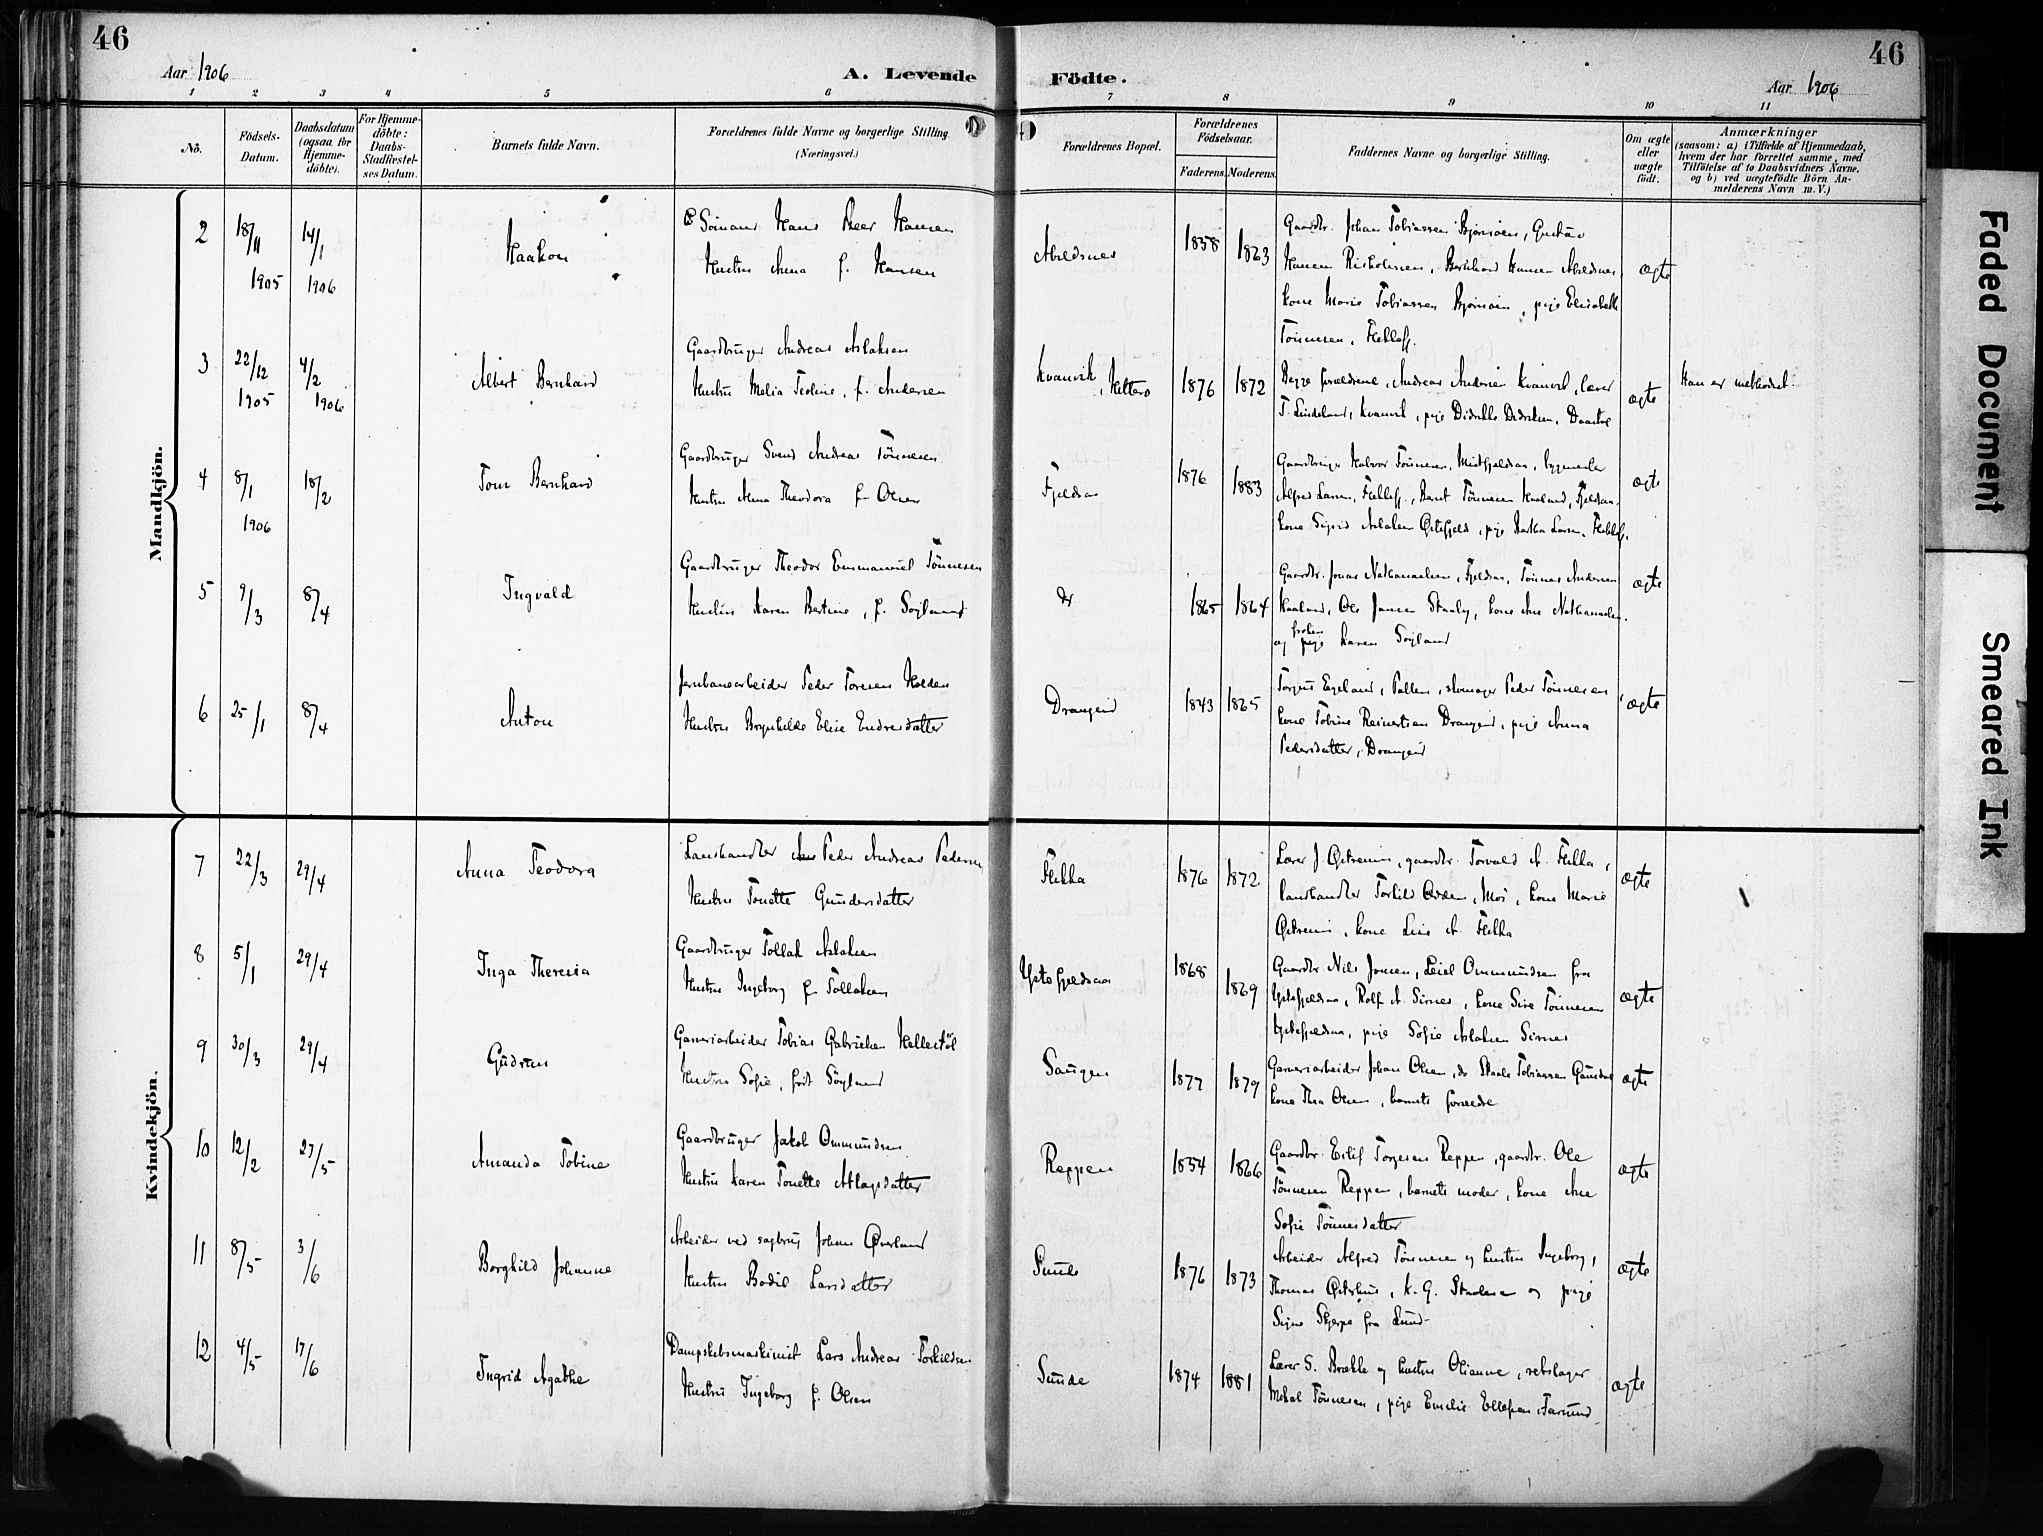 46
46
Aar 1906
A. Levende Födte.
Aar 1906
1 2 3 4 5 6 7 8 9 10 11
Nô.
Födsels-Datum.
Daabsdatum (ogsaa for Hjemme-döbte).
For Hjemme-döbte: Daabs-Stadfæstel-ses Datum.
Barnets fulde Navn.
Forældrenes fulde Navne og borgerlige Stilling. (Næringsvei.)
Forældrenes Bopæl.
Forældrenes Födselsaar.
Faderens. Moderens.
Faddernes Navne og borgerlige Stilling.
Om ægte eller uægte födt.
Anmærkninger
(saasom: a) i Tilfælde af Hjemmedaab,
hvem der har forrettet samme, med
Tilföielse af to Daabsvidners Navne.
og b) ved uægtefödte Börn An-
melderens Navn m. V.)
Mandkjön.
2 18/11 1905 14/1 1906
Haakon
Hans Peer Hansen
Hustru Anna f. Hansen
Abelsnes
1858 1863
Gaardbr. Johan Tobiassen Bjørnøen, Gustav
Hansen Risholmen, Bernhard Hansen Abelsnes,
kone Marie Tobiassen Bjørnøen, pige Elisabeth
Tönnesen, Flekkefj.
ægte
3 22/12 1905 4/2 1906
Albert Bernhard
Gaardbruger Andreas Aslaksen
Hustru Melia Teoline, f. Andersen
Kvanvik, Hitterø
1876 1872
Begge forældrene, Andreas Andersen Kvanvik, lærer
T. Lindeland, Kvanvik, pige Didrikke Didriksen,
ægte
Han er methodist.
4 8/1 1906 18/2
Tom Bernhard
Gaardbruger Svend Andreas Tönnesen
Hustru Anna Theodora f. Olsen
Fjeldsaa
1876 1883
Gaardbruger Halvor Tönnesen, Midtfjeldsaa, bygmester
Alfred Larsen, Flekkefj., Bernt Tönnesen Haaland, Fjeldsaa,
kone Sigrid Aslaksen Østefjeld, pige Larsen, Flekkefj.
ægte
5 9/3 8/4
Ingvald
Gaardbruger Theodor Emmanuel Tönnesen
Hustru Karen Bertine, f. Søyland
do
1865 1864
Gaardbr. Jonas Nathanaelsen, Fjeldsaa, Tönnes Andersen
Haaland, Ole Jansen Staaby, kone Ane Nathanaelsen,
og frøken pige Karen Søyland
ægte
6 25/1 8/4
Anton
Jernbanearbeider Peder Toresen Holden
Hustru Brynhilde Elise Endresdatter
Drangeid
1843 1865
Torgus Egeland, Pollen, skomager Peder Tönnesen
kone Tobine Reinertsen Drangeid, pige Anna
Pedersdatter, Drangeid
ægte
Kvindekjön.
7 22/3 29/4
Anna Teodora
Landhandler Peder Andreas Pedersen
Hustru Tonette Gundersdatter
Flikka
1876 1872
Lærer J. Østreim, gaardbr. Torvald A. Flikka,
landhandler Torkild Osden, Moi, kone Marie
Østreim, kone Lise A. Flikka
ægte
8 5/1 29/4
Inga Theresia
Gaardbruger Tollak Aslaksen
Hustru Ingeborg f. Tollaksen
Ystefjeldsaa
1868 1869
Gaardbr Nils Jonsen, Leiel Ommundsen fra
Ystefjeldsaa, Rolf A. Sirnes, kone Sire Tönnesen
Ystefjeldsaa, pige Sofie Aslaksen Sirnes
ægte
9 30/3 29/4
Gudrun
Garveriarbeider Tobias Gabrielsen Hellestöl
Hustru Sofie, født Söyland
Saugen
1877 1879
Garveriarbeider Johan Olsen, do Staale Tobiassen
kone Thea Olsen, barnets forældre
ægte
10 12/2 27/5
Amanda Tobine
Gaardbruger Jakob Ommundsen
Hustru Karen Tonette Atlagsdatter
Reppen
1854 1866
Gaardbr. Eilif Torgesen Reppen, gaardbr. Ole
Tönnesen Reppen, barnets moder, kone Ane
Sofie Tönnesdatter
ægte
11 8/5 3/6
Borghild Johanne
Arbeider ved sagbrug Johan Øverland
Hustru Bodil Larsdatter
Sunde
1876 1873
Arbeider Alfred Tönnesen og hustru Ingeborg,
Thomas Østhus, K. G. Staalesen og pige
Signe Skjerpe fra Lund
ægte
12 4/5 17/6
Ingrid Agathe
Dampskibsmaskinist Lars Andreas Torkildsen
Hustru Ingeborg f. Olsen
Sunde
1874 1881
Lærer S. Brække og hustru Olianne, rebslager
Mikal Tönnesen, pige Emilie Ellefsen, Farsund
ægte
Faded Document
Smeared Ink